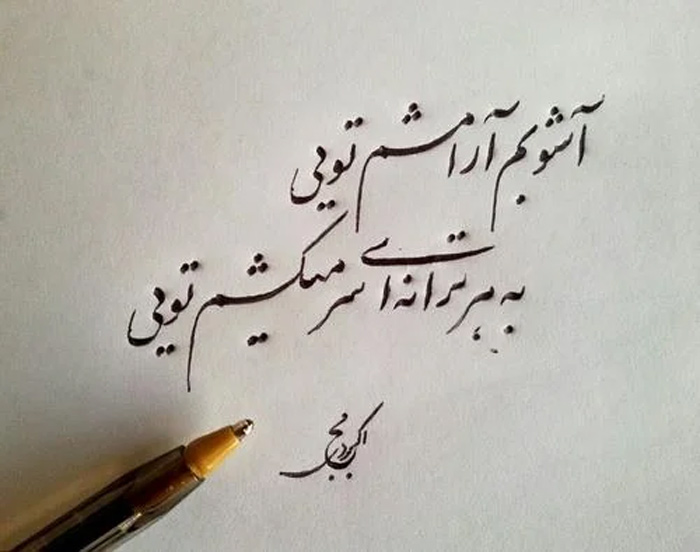 آشوبم آرامشم تویی
به هر ترانه‌ای سر میکشم تویی